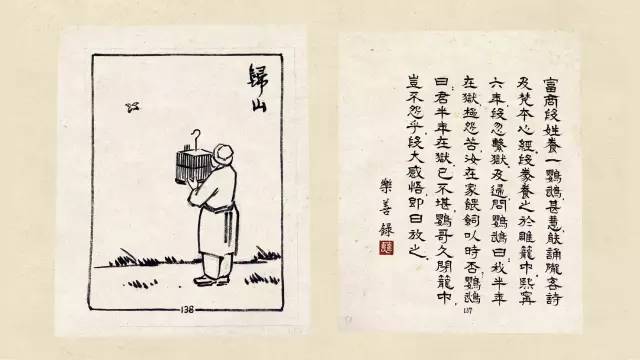 歸山
138
富商段姓養一鸚鵡甚慧能誦隴客詩
及梵本心經段豢養之於雕籠中熙寧
六年段忽繫獄及還問鸚鵡曰我半年
在獄極怨苦汝在家餵飼以時否鸚鵡
曰君半年在獄已不堪鸚哥久閉籠中
豈不怨乎段大感悟即日放之
樂善錄
137